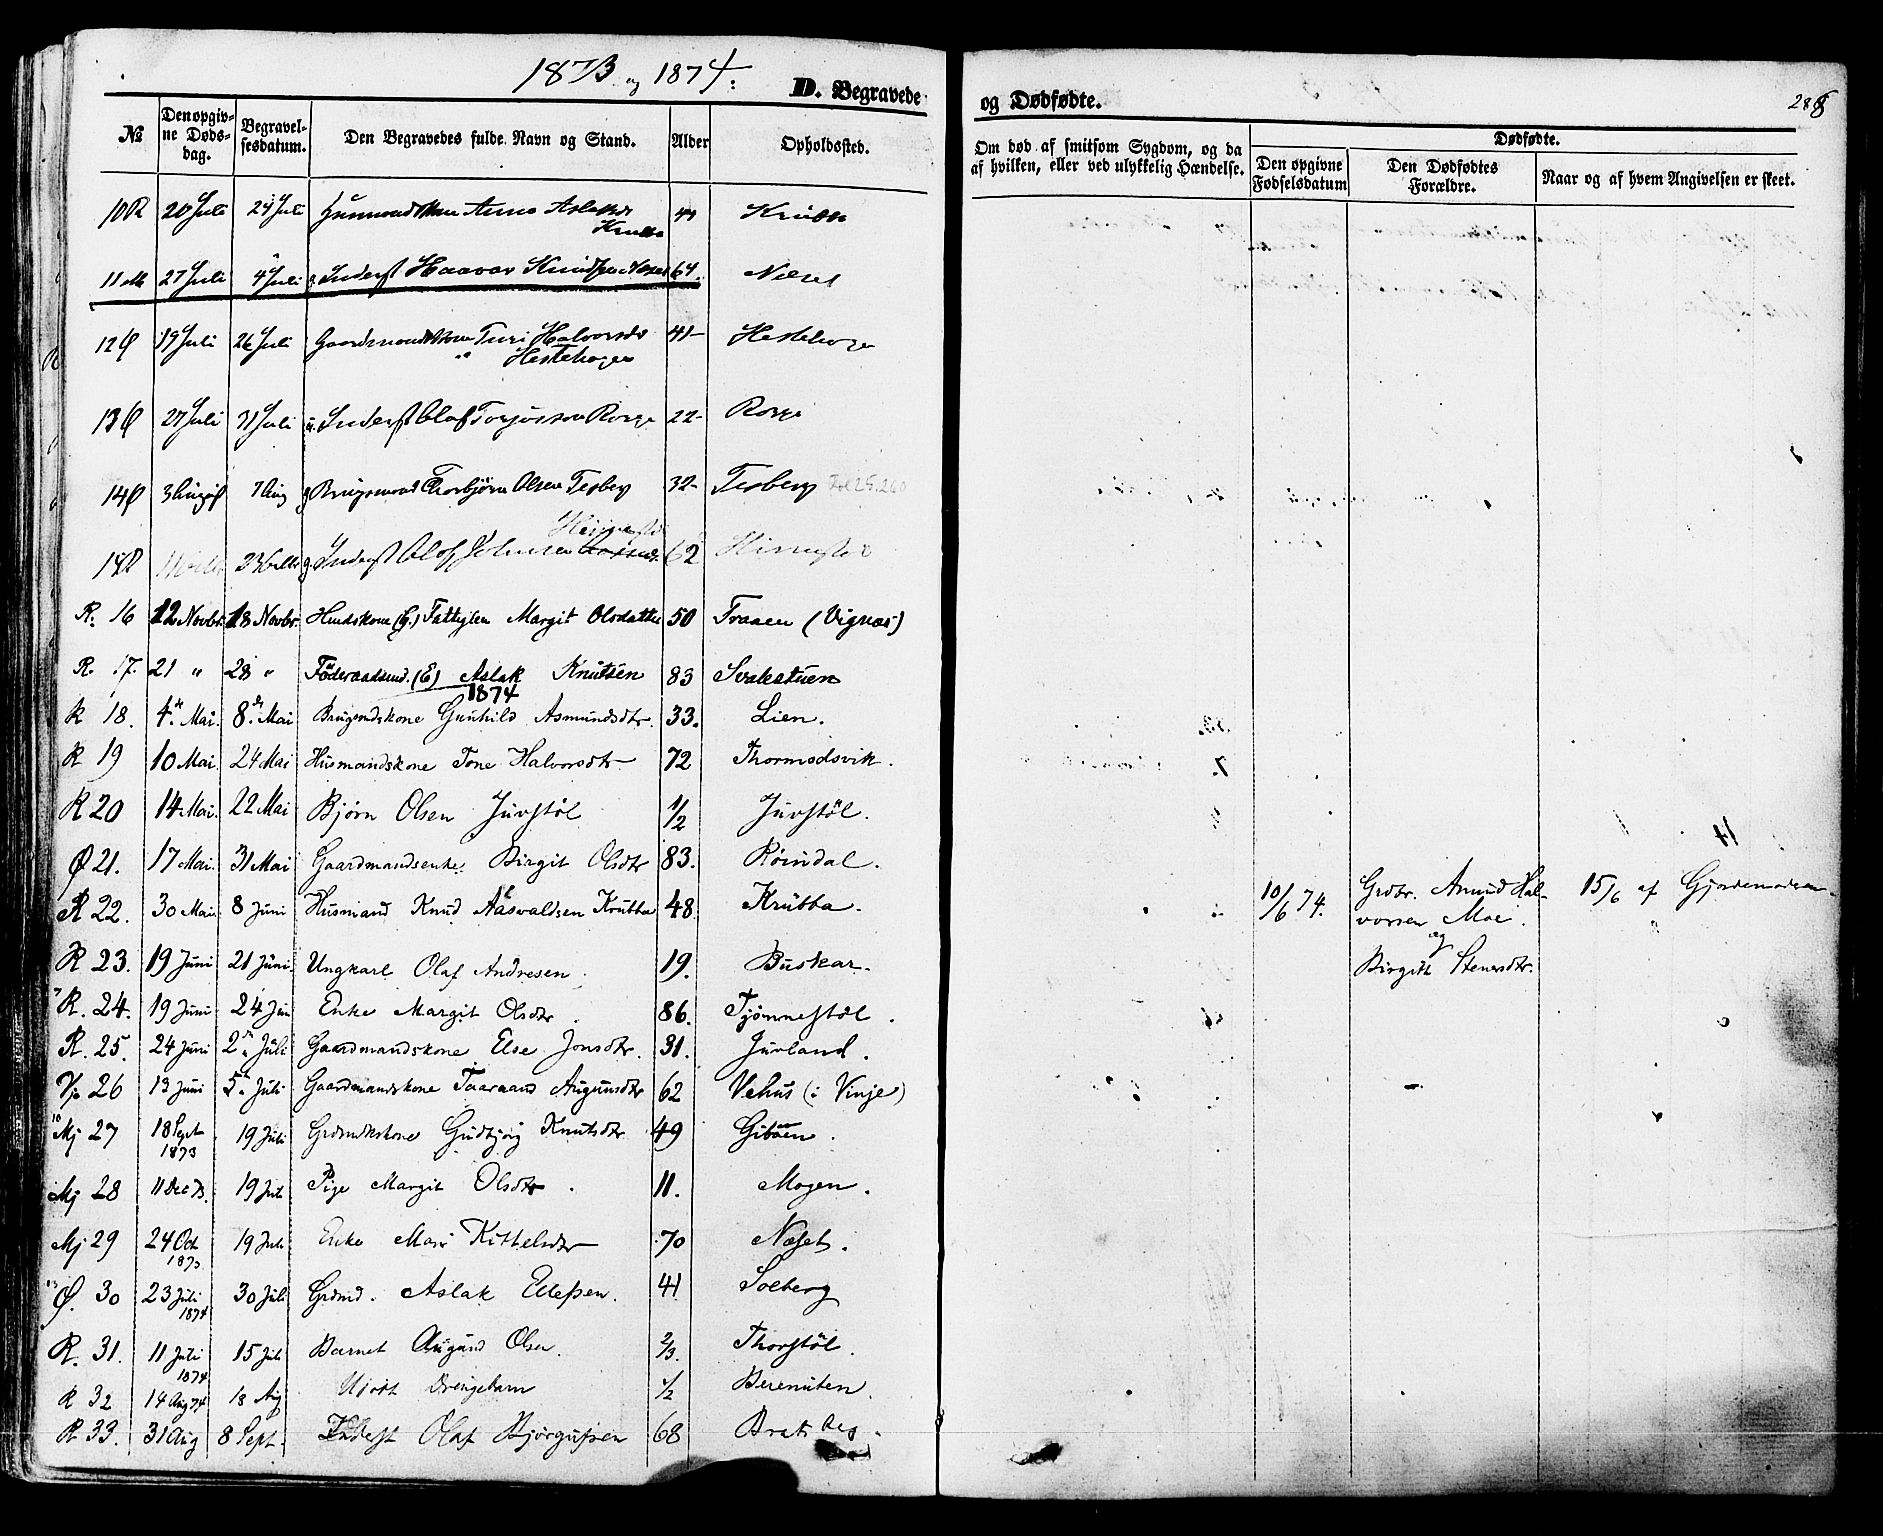 1873 og 1874:
D. Begravede
og Dødfødte.
№ Den opgivne Dødsdag. Begravelsesdatum. Den Begravedes fulde Navn og Stand. Alder Opholdssted.
Om død af smitsom Sygdom, og da af hvilken, eller ved ulykkelig Hændelse.
Dødfødte.
Den opgivne Fødselsdatum
Den Dødfødtes Forældre.
Naar og af hvem Angivelsen er skeet.
10 R 20 Juli 24 Juli Anne
11 M 27 Juli 4 Juli Inderst Haavar 64
12 Ø 19 Juli 26 Juli Gaardmandskone Turi Halvorsdr 41
Hestehagen
13 Ø 27 Juli 31 Juli Inderst Olaf Rorge 22 Rorge
14 Ø 3 August 7 Aug g Brugsmand Thorbjørn Olsen Tesberg 32 Tesberg
23 g Inderst Olaf Johnsen 62
R. 16 12 Novbr. 18 Novbr. Margit Olsdatter 50 Traaen (Vignæs)
R. 17. 21 " 28 " Föderaadsmd. (E) Aslak Knutsen 83 Svalestuen
1874
R 18. 4de Mai. 8de Mai Brugsmdskone Gunhild Asmundsdtr. 33. Lien.
R 19 10 Mai. 24 Mai Husmandskone Tone Halvorsdtr 72 Thormodsvik.
R 20 14 Mai. 22 Mai Bjørn Olsen Juvstöl 1/2 Juvstöl.
Ø 21. 17 Mai. 31 Mai Gaardmandsenke Birgit Olsdtr 83. Röindal.
R 22. 30 Mai 8 Juni Husmand Knud Aasvaldsen Krubba 48 Krubba.
10/6 74. Grdbr. Amund Halvorsen Moe.
og
Birgith Stenersdtr.
15/6 af Gjordemoderen
R 23. 19 Juni 21 Juni. Ungkarl Olaf Andresen 19. Buskar.
R. 24. 19 Juni 24 Juni Enke Margit Olsdtr. 86. Tjönnestöl.
R. 25. 24 Juni 2den Juli Gaardmandskone Else Jonsdtr. 31. Juvland.
Vj. 26 13 Juni 5te Juli Gaardmandskone Taarand Augunsdtr 62 Vehus (i Vinje)
Mj 27 18 Sept 1873 19 Juli Grdmdskone Gudbjörg Knutsdtr 49 Giböen.
Mj 28 11 Dec 73. 19 Juli Pige Margit Olsdtr. 11. Mogen.
Mj 29 24 Oct 1873 19 Juli Enke Mari Kittelsdtr 70 Næset.
Ø. 30 23 Juli 1874 30 Juli Grdmd. Aslak Ellefsen. 41 Solberg
R. 31. 11 Juli 1874 15 Juli Barnet Augund Olsen. 2/3. Thorstöl.
R 32 14 Aug 74 18 Aug Udöbt Drengebarn 1/2 Berenuten.
R 33. 31 Aug 8 Sept. Inderst Olaf Bjørgufsen 68